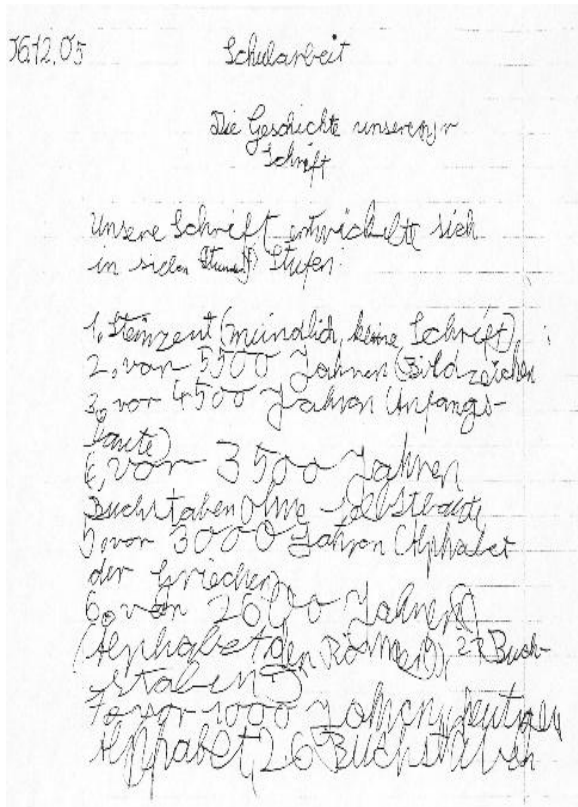 16.12.05 Schularbeit
Die Geschichte unserer
Schrift
Unsere Schrift entwickelte sich
in sieben Stufen:
1. Steinzeit (mündlich, keine Schrift),
2. vor 5500 Jahren (Bildzeichen
3. vor 4500 Jahren Anfangs-
laute)
4. vor 3500 Jahren
Buchstaben ohne Selbstlaute
5. vor 3000 Jahren (Alphabet
der Griechen)
6. vor 2600 Jahren
(Alphabet der Römer) Buch-
staben
7. vor 1000 Jahren heutiges
Alphabet, 26 Buchstaben